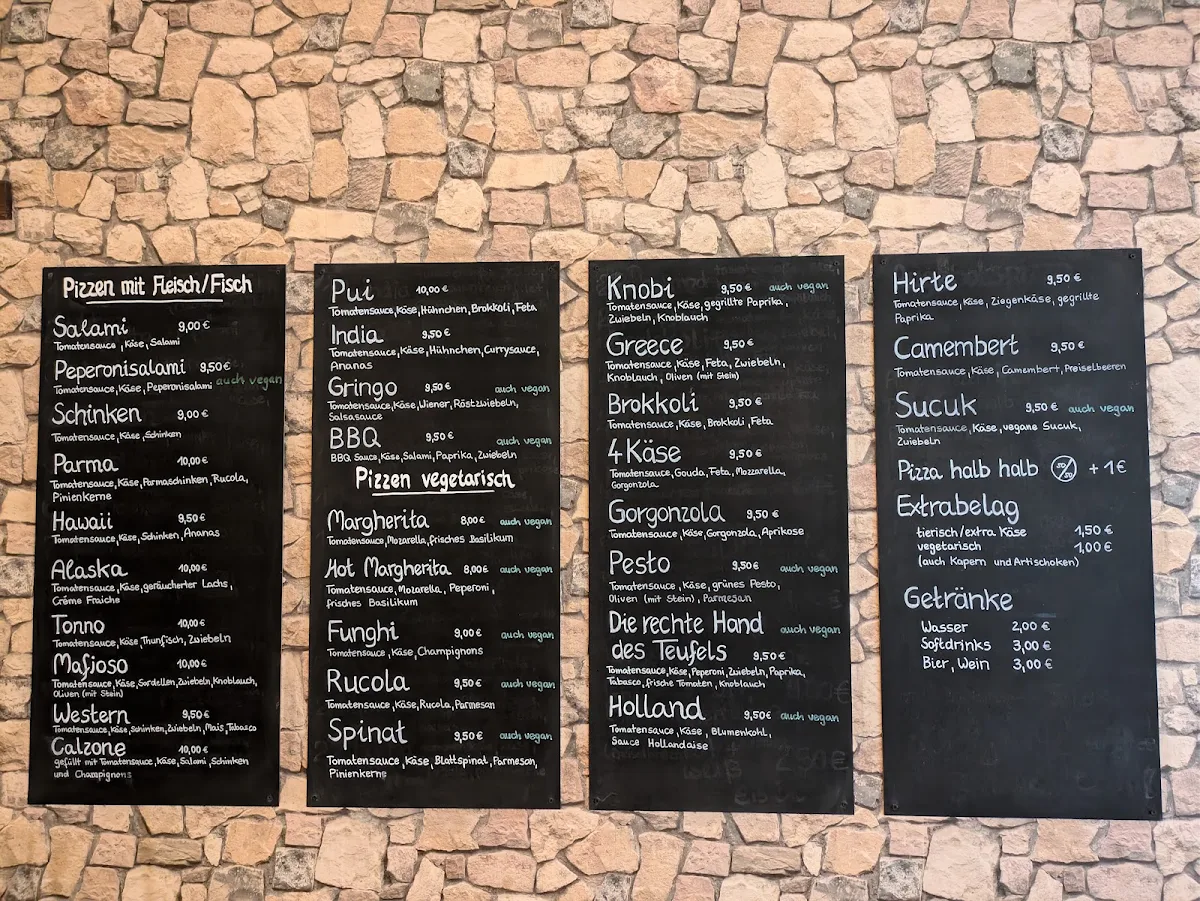 Pizzen mit Fleisch/Fisch
Salami 9,00 €
Tomatensauce, Käse, Salami
Peperonisalami 9,50 €
Tomatensauce, Käse, Peperonisalami auch vegan
Schinken 9,00 €
Tomatensauce, Käse, Schinken
Parma 10,00 €
Tomatensauce, Käse, Parmaschinken, Rucola,
Pinienkerne
Hawaii 9,50 €
Tomatensauce, Käse, Schinken, Ananas
Alaska 10,00 €
Tomatensauce, Käse, geräucherter Lachs,
Créme Fraiche
Tonno 10,00 €
Tomatensauce, Käse Thunfisch, Zwiebeln
Mafioso 10,00 €
Tomatensauce, Käse, Sardellen, Zwiebeln, Knoblauch,
Oliven (mit Stein)
Western 9,50 €
Tomatensauce, Käse, Schinken, Zwiebeln, Mais, Tabasco
Calzone 10,00 €
gefüllt mit Tomatensauce, Käse, Salami, Schinken
und Champignons
Pui 10,00 €
Tomatensauce, Käse, Hühnchen, Brokkoli, Feta
India 9,50 €
Tomatensauce, Käse, Hühnchen, Currysauce,
Ananas
Gringo 9,50 € auch vegan
Tomatensauce, Käse, Wiener, Röstzwiebeln,
Salsasauce
BBQ 9,50 € auch vegan
BBQ Sauce, Käse, Salami, Paprika, Zwiebeln
Pizzen vegetarisch
Margherita 8,00 € auch vegan
Tomatensauce, Mozarella, frisches Basilikum
Hot Margherita 8,00 € auch vegan
Tomatensauce, Mozarella, Peperoni,
frisches Basilikum
Funghi 9,00 € auch vegan
Tomatensauce, Käse, Champignons
Rucola 9,50 € auch vegan
Tomatensauce, Käse, Rucola, Parmesan
Spinat 9,50 € auch vegan
Tomatensauce, Käse, Blattspinat, Parmesan,
Pinienkerne
Knobi 9,50 € auch vegan
Tomatensauce, Käse, gegrillte Paprika,
Zwiebeln, Knoblauch
Greece 9,50 €
Tomatensauce, Käse, Feta, Zwiebeln,
Knoblauch, Oliven (mit Stein)
Brokkoli 9,50 €
Tomatensauce, Käse, Brokkoli, Feta
4 Käse 9,50 €
Tomatensauce, Gouda, Feta, Mozzarella,
Gorgonzola
Gorgonzola 9,50 €
Tomatensauce, Käse, Gorgonzola, Aprikose
Pesto 9,50€ auch vegan
Tomatensauce, Käse, grünes Pesto,
Oliven (mit Stein), Parmesan
Die rechte Hand auch vegan
des Teufels 9,50 €
Tomatensauce, Käse, Peperoni, Zwiebeln, Paprika,
Tabasco, frische Tomaten, Knoblauch
Holland 9,50€ auch vegan
Tomatensauce, Käse, Blumenkohl,
Sauce Hollandaise
Hirte 9,50 €
Tomatensauce, Käse, Ziegenkäse, gegrillte
Paprika
Camembert 9,50 €
Tomatensauce, Käse, Camembert, Preiselbeeren
Sucuk 9,50 € auch vegan
Tomatensauce, Käse, vegane Sucuk,
Zwiebeln
Pizza halb halb 50/50 + 1€
Extrabelag
tierisch/extra Käse 1,50 €
vegetarisch 1,00 €
(auch Kapern und Artischoken)
Getränke
Wasser 2,00 €
Softdrinks 3,00 €
Bier, Wein 3,00 €